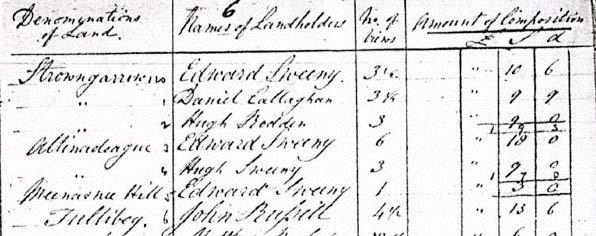 6
Denomynations of Land. Names of Landholders No. of Cows Amount of Composition
£ S d
Edward Sweeny. 3½ " 10 6
" 1 Daniel Callaghan 3¼ " 9 9
" 2 Hugh Bodden 3 " 9 0
Altinadeague 3 Edward Sweeny 6 1 " 18 0
" 4 Hugh Sweeny 3 " 9 0
Meenasnee Hill 5 Edward Sweeny 1 " 3 0
Tullibeg. 6 John Russell 4½ " 13 6